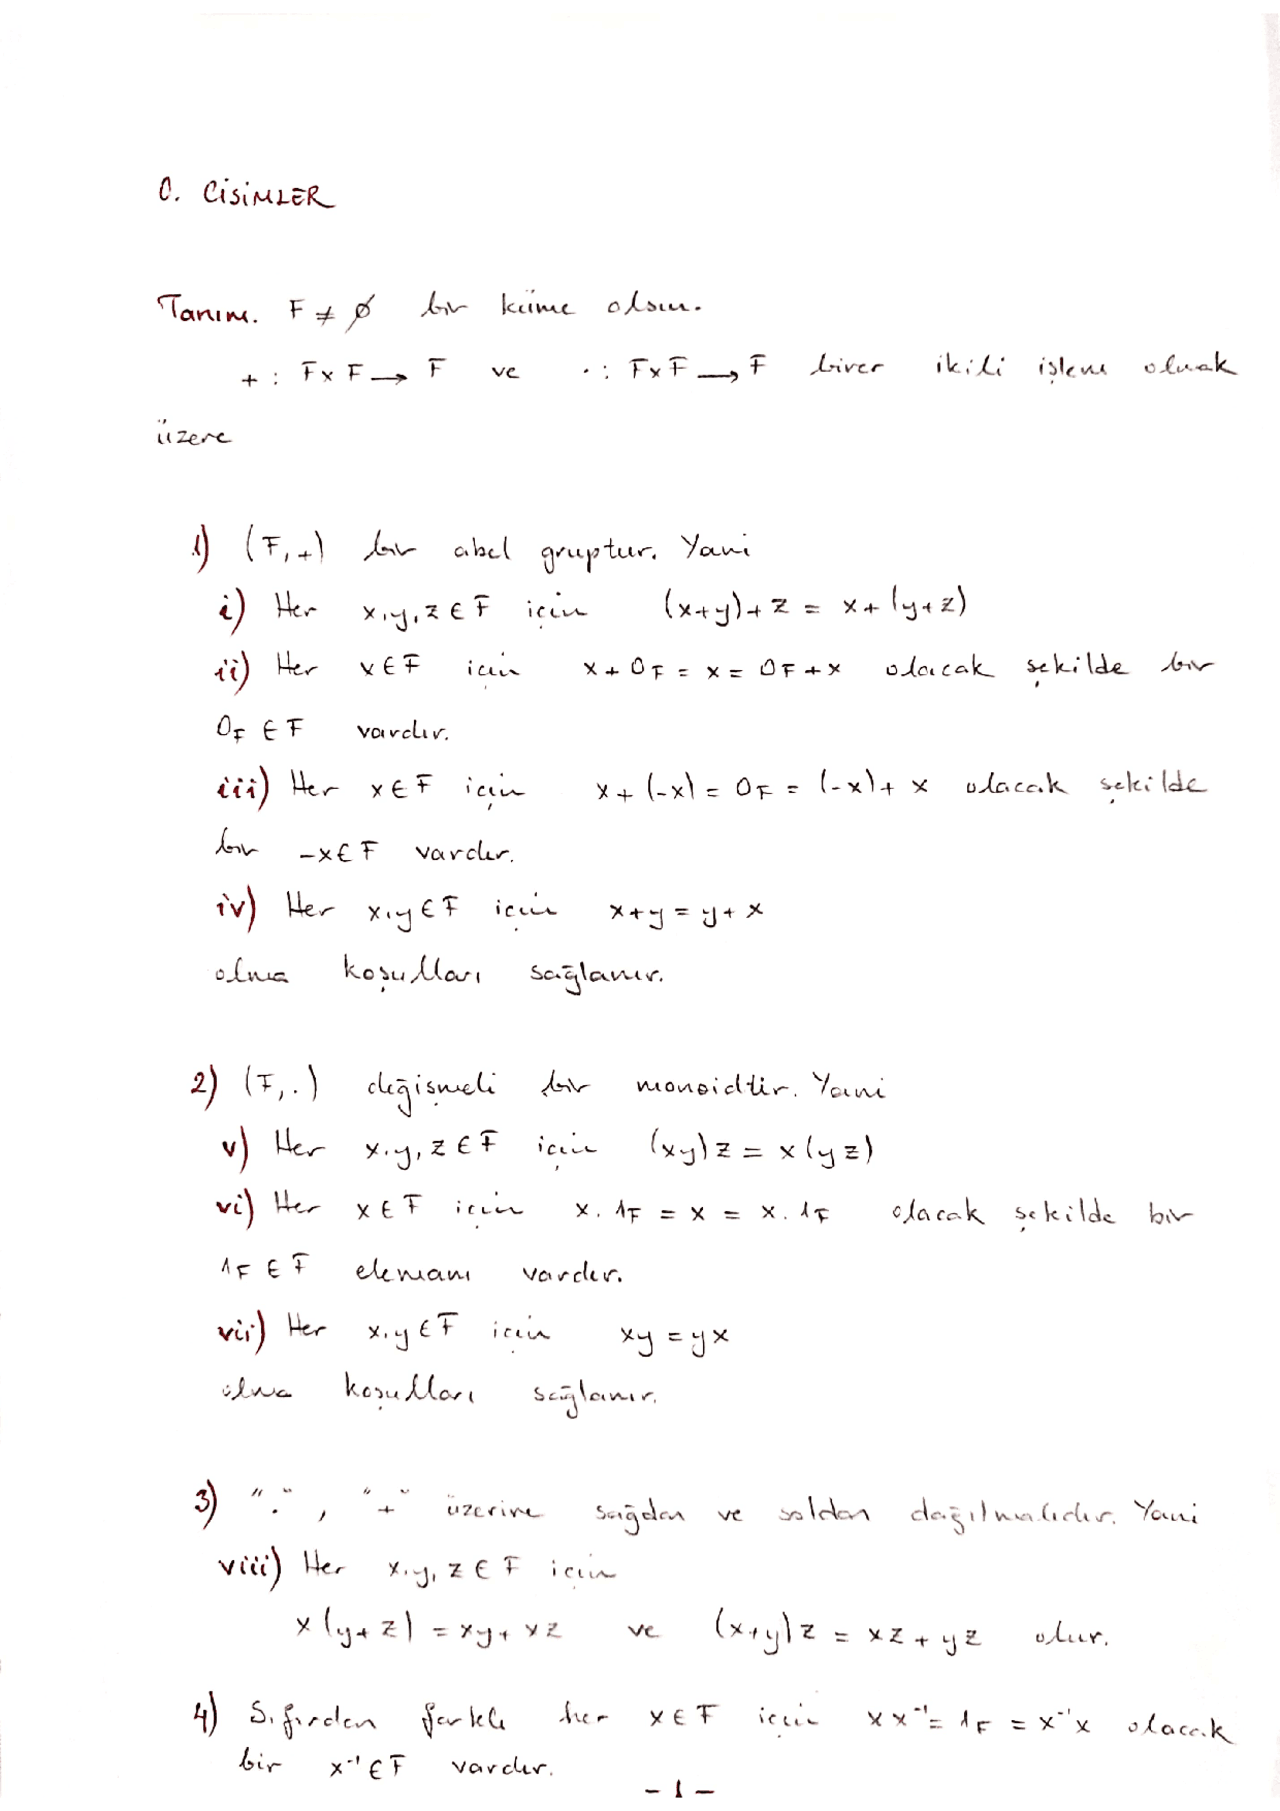 0. CİSİMLER
Tanım. F ≠ ∅ bir küme olsun.
+ : F x F → F ve · : F x F → F birer ikili işlem olmak
üzere
1) (F, +) bir abel gruptur. Yani
i) Her x, y, z ∈ F için (x+y)+z = x+(y+z)
ii) Her x ∈ F için x + 0_F = x = 0_F + x olacak şekilde bir
0_F ∈ F vardır.
iii) Her x ∈ F için x + (-x) = 0_F = (-x) + x olacak şekilde
bir -x ∈ F vardır.
iv) Her x, y ∈ F için x+y = y+x
olma koşulları sağlanır.
2) (F, .) değişmeli bir monoidtir. Yani
v) Her x, y, z ∈ F için (xy)z = x(yz)
vi) Her x ∈ F için x. 1_F = x = x. 1_F olacak şekilde bir
1_F ∈ F elemanı vardır.
vii) Her x, y ∈ F için xy = yx
olma koşulları sağlanır.
3) "." , "+" üzerine sağdan ve soldan dağılmalıdır. Yani
viii) Her x, y, z ∈ F için
x(y+z) = xy + xz ve (x+y)z = xz + yz olur.
4) Sıfırdan farklı her x ∈ F için xx⁻¹ = 1_F = x⁻¹x olacak
bir x⁻¹ ∈ F vardır.
- 1 -